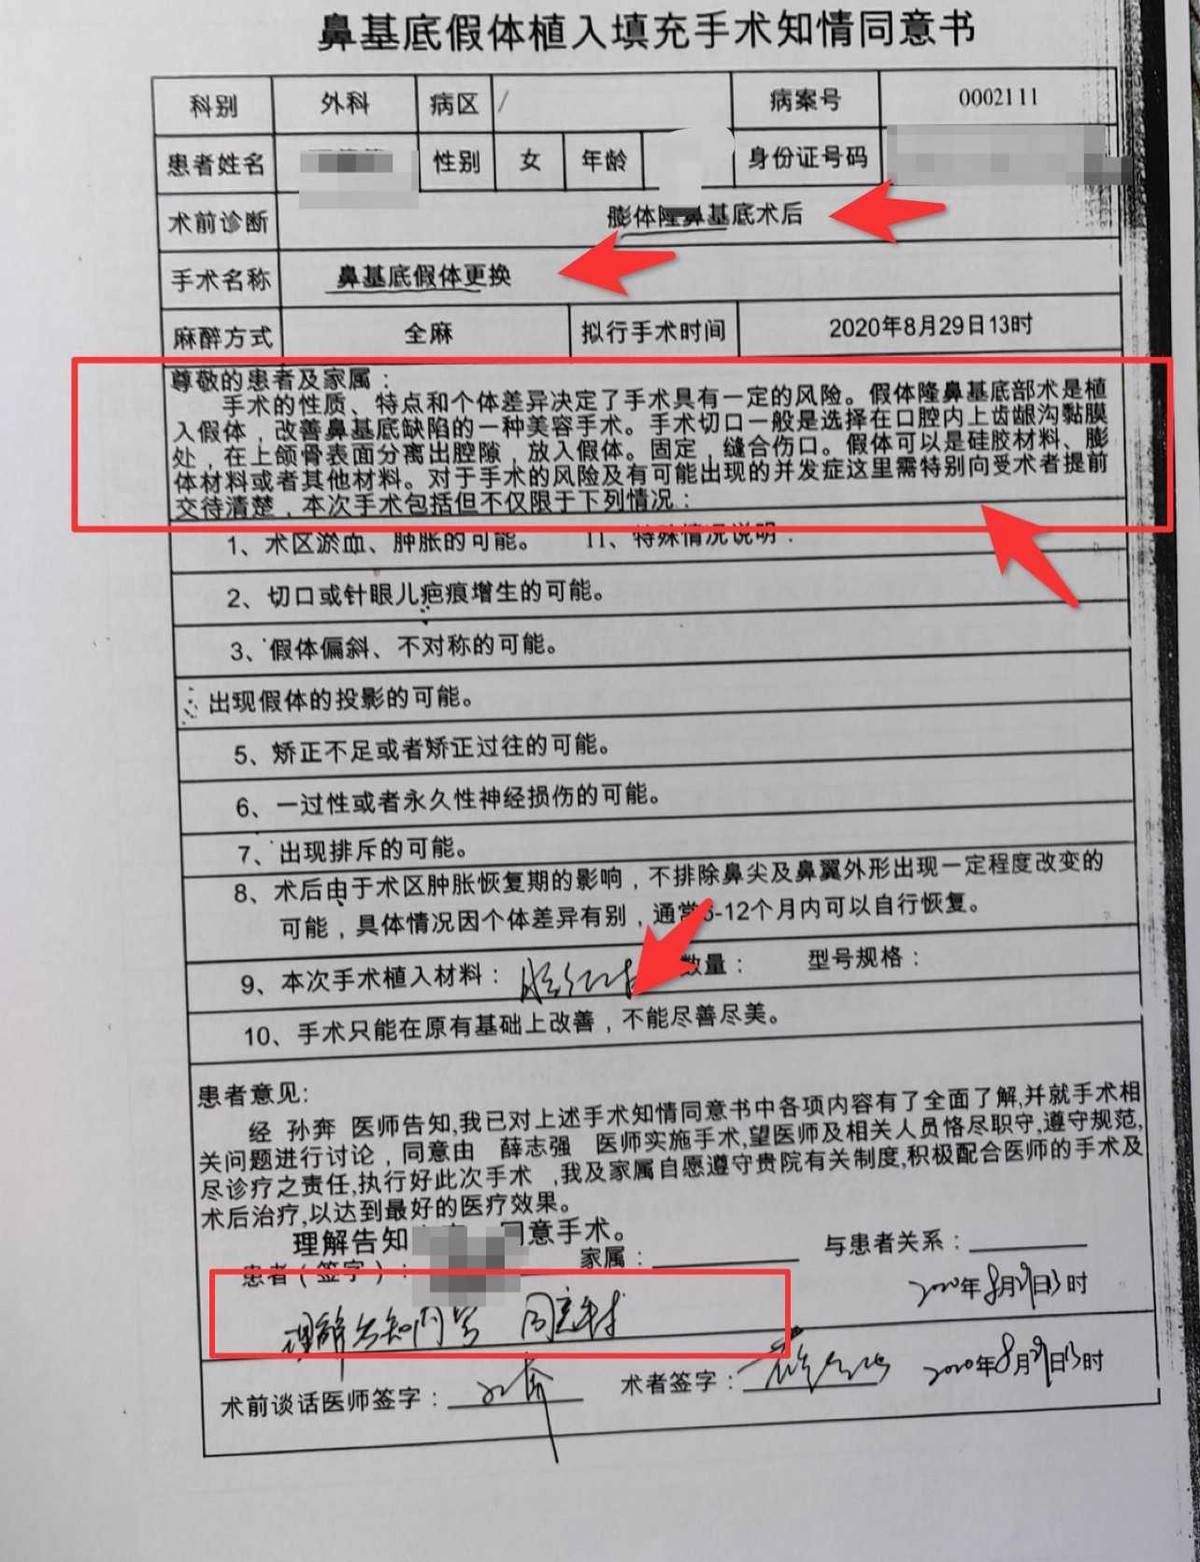 鼻基底假体植入填充手术知情同意书
科别 外科 病区 / 病案号 0002111
患者姓名 性别 女 年龄 身份证号码
术前诊断 膨体隆鼻基底术后
手术名称 鼻基底假体更换
麻醉方式 全麻 拟行手术时间 2020年8月29日13时
尊敬的患者及家属：
手术的性质、特点和个体差异决定了手术具有一定的风险。假体隆鼻基底部术是植
入假体，改善鼻基底缺陷的一种美容手术。手术切口一般是选择在口腔内上齿龈沟黏膜
处，在上颌骨表面分离出腔隙，放入假体。固定，缝合伤口。假体可以是硅胶材料、膨
体材料或者其他材料。对于手术的风险及有可能出现的并发症这里需特别向受术者提前
交待清楚，本次手术包括但不仅限于下列情况：
1、术区淤血、肿胀的可能。 11、特殊情况说明：
2、切口或针眼儿疤痕增生的可能。
3、假体偏斜、不对称的可能。
出现假体的投影的可能。
5、矫正不足或者矫正过往的可能。
6、一过性或者永久性神经损伤的可能。
7、出现排斥的可能。
8、术后由于术区肿胀恢复期的影响，不排除鼻尖及鼻翼外形出现一定程度改变的
可能，具体情况因个体差异有别，通常6-12个月内可以自行恢复。
9、本次手术植入材料： 数量： 型号规格：
10、手术只能在原有基础上改善，不能尽善尽美。
患者意见:
经 孙奔 医师告知,我已对上述手术知情同意书中各项内容有了全面了解,并就手术相
关问题进行讨论，同意由 薛志强 医师实施手术,望医师及相关人员恪尽职守,遵守规范,
尽诊疗之责任,执行好此次手术 ,我及家属自愿遵守贵院有关制度,积极配合医师的手术及
术后治疗,以达到最好的医疗效果。
理解告知 同意手术。
患者（签字）： 家属： 与患者关系：
2020年8月29日13时
理解告知内容 同意手术
术前谈话医师签字： 孙奔 术者签字： 2020年8月29日13时